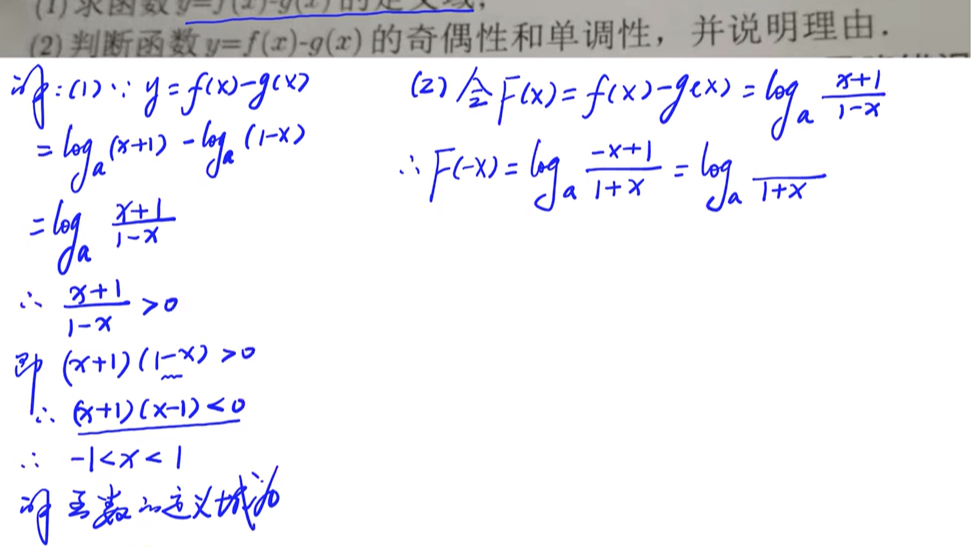 (1) 求函数y=f(x)-g(x)的定义域;
(2) 判断函数y=f(x)-g(x)的奇偶性和单调性，并说明理由.
解:(1)∵ y=f(x)-g(x)
=log_a(x+1)-log_a(1-x)
=log_a (x+1)/(1-x)
∴ (x+1)/(1-x)>0
即 (x+1)(1-x)>0
∴ (x+1)(x-1)<0
∴ -1<x<1
函数的定义域为
(2) 令F(x)=f(x)-g(x)=log_a (x+1)/(1-x)
∴F(-x)=log_a (-x+1)/(1+x)=log_a /(1+x)